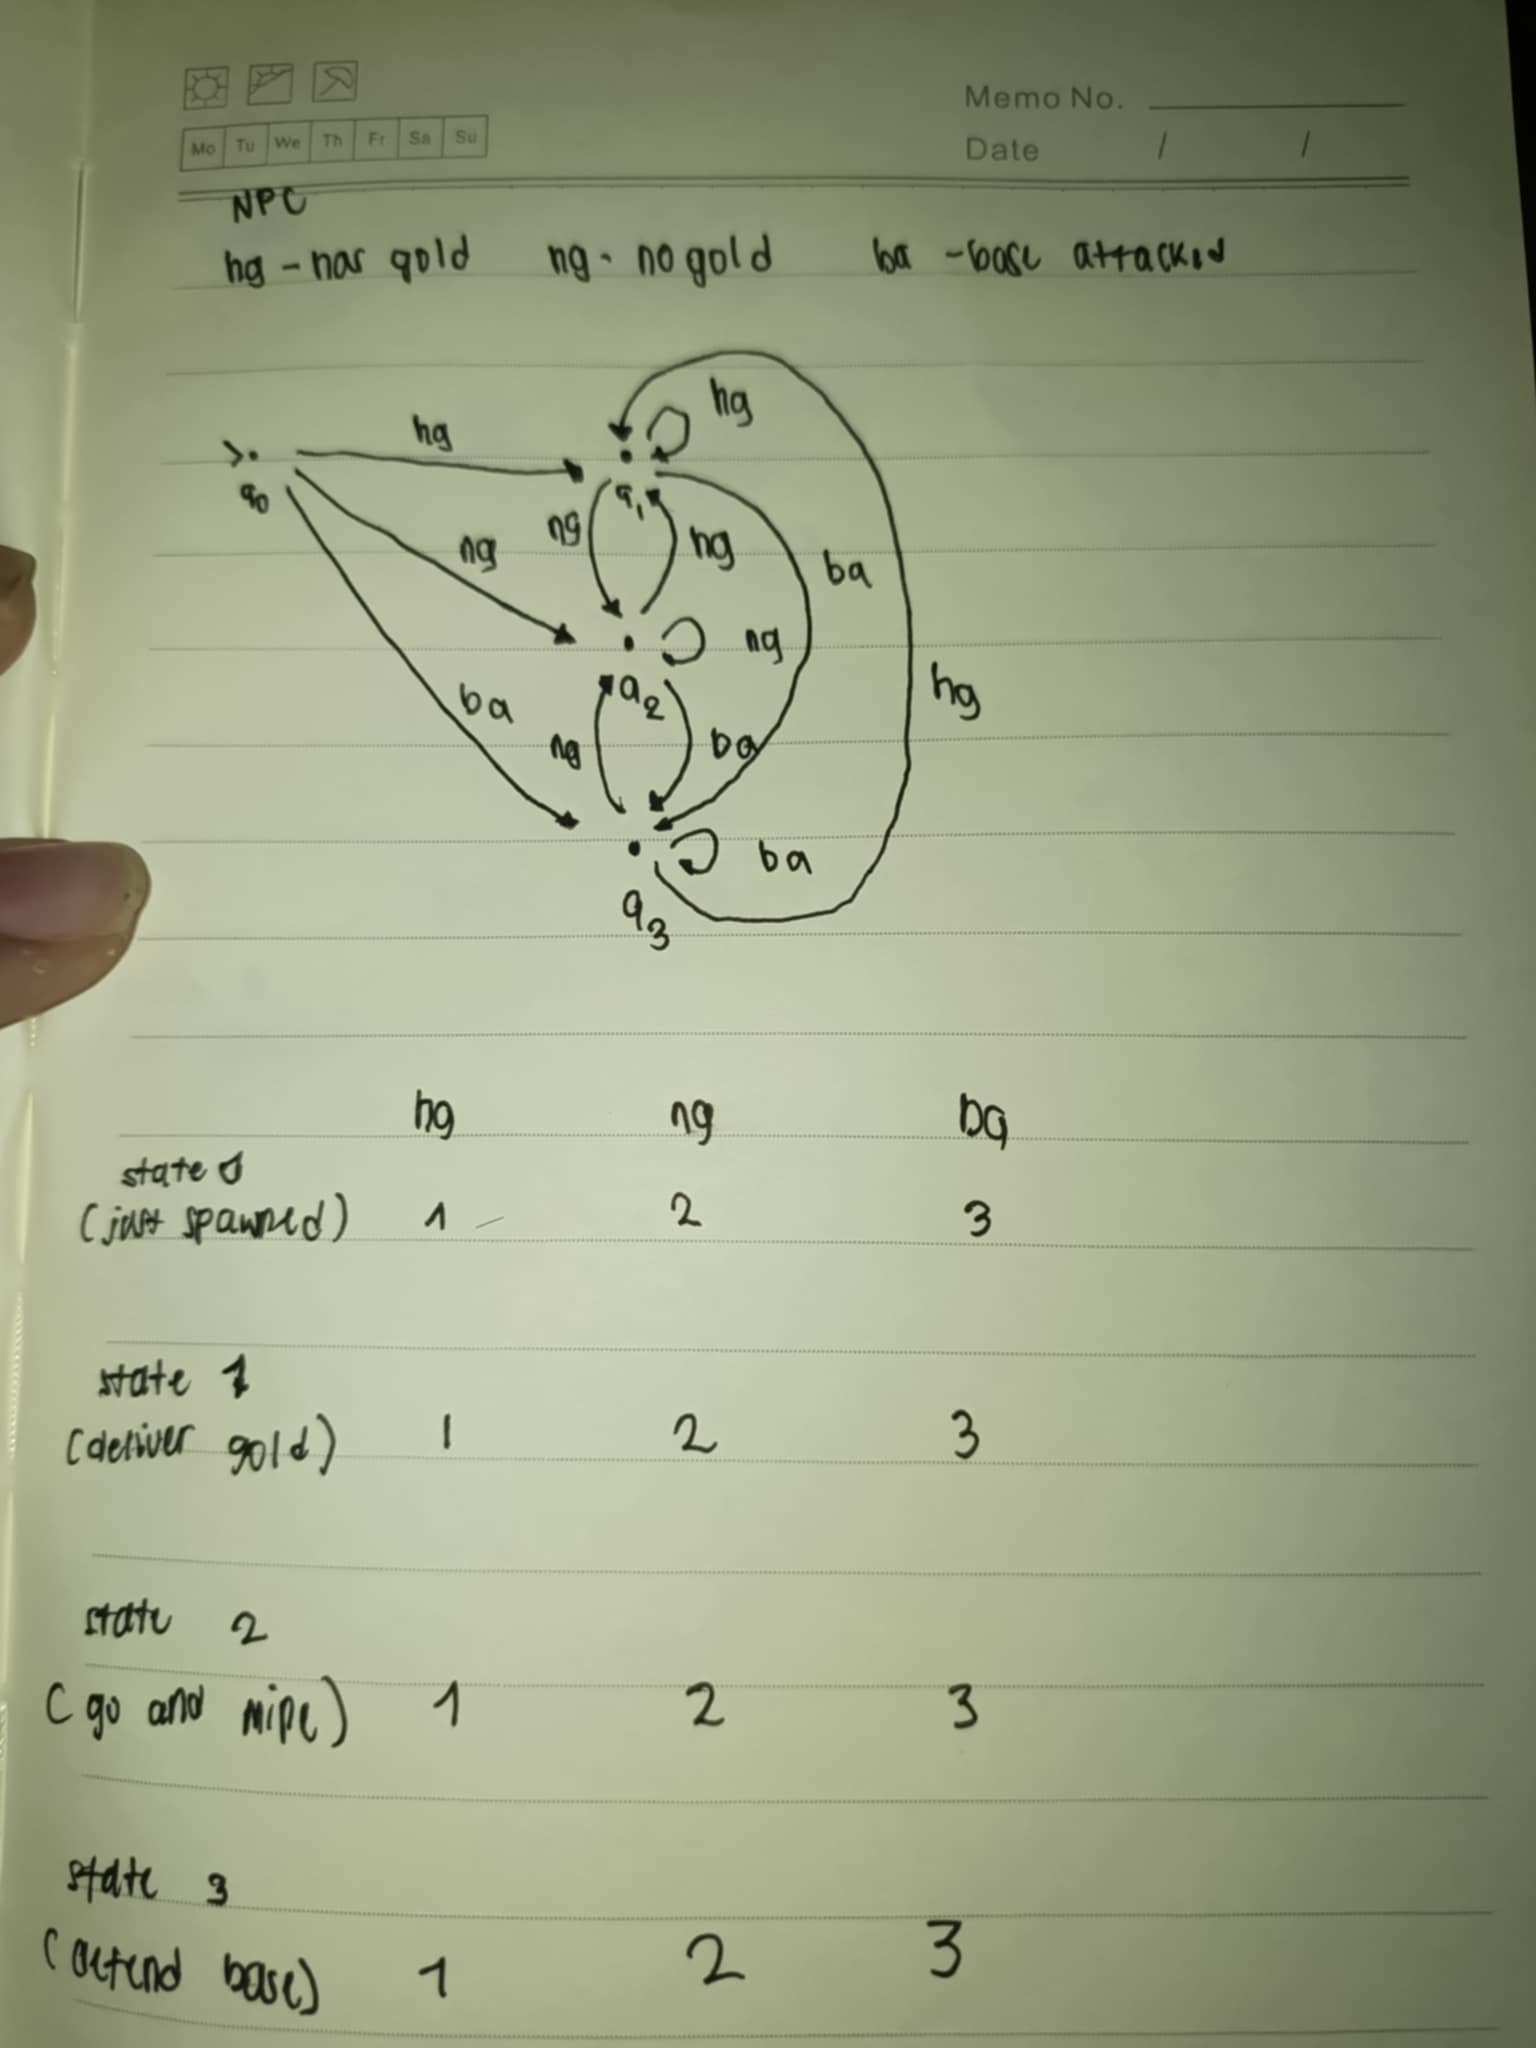 Memo No.
Mo Tu We Th Fr Sa Su
Date / /
NPC
hg - has gold ng - no gold ba - base attacked
hg
hg
>.
q0
q1
ng
ng
hg
ba
ng
q2
hg
ba
ng
ba
ba
q3
hg ng ba
state 0
(just spawned) 1 2 3
state 1
(deliver gold) 1 2 3
state 2
(go and mine) 1 2 3
state 3
(defend base) 1 2 3